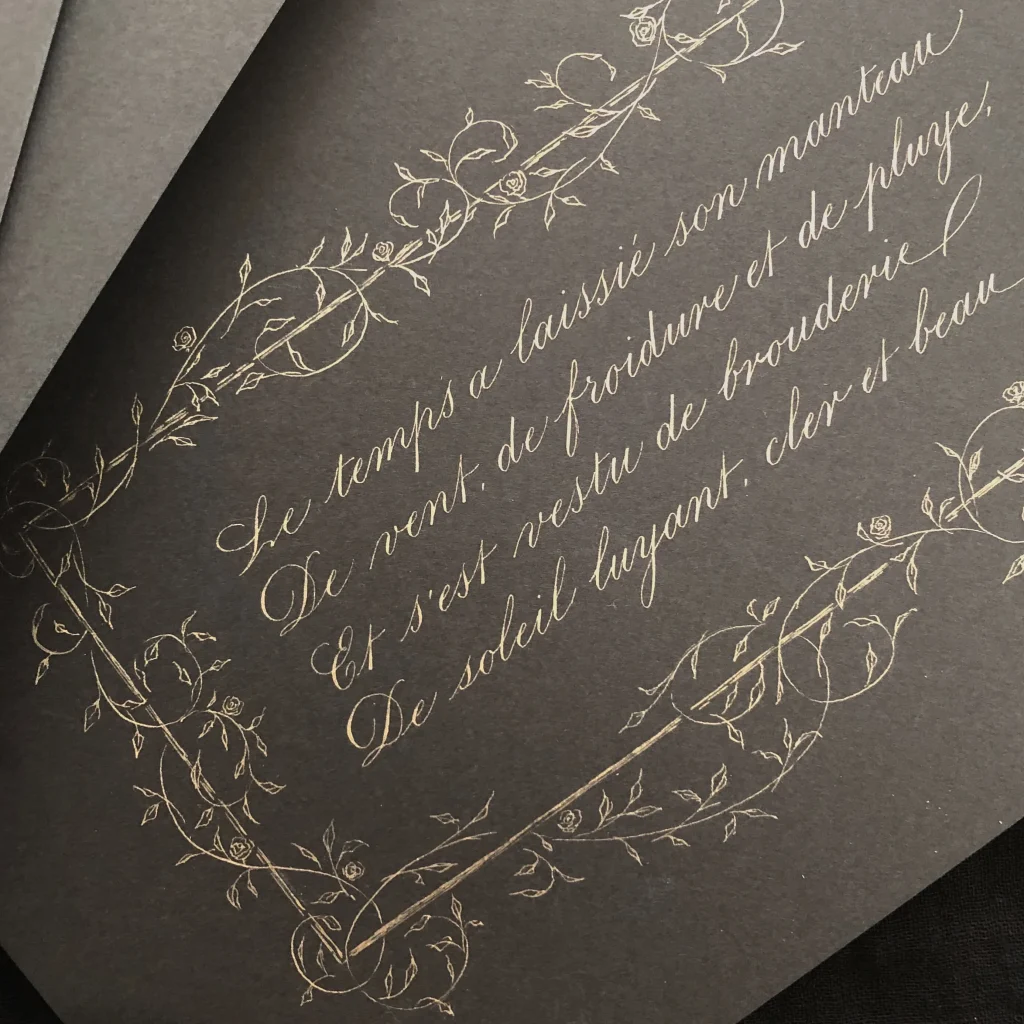 Le temps a laissié son manteau
De vent, de froidure et de pluye,
Et s'est vestu de brouderie
De soleil luyant, cler et beau